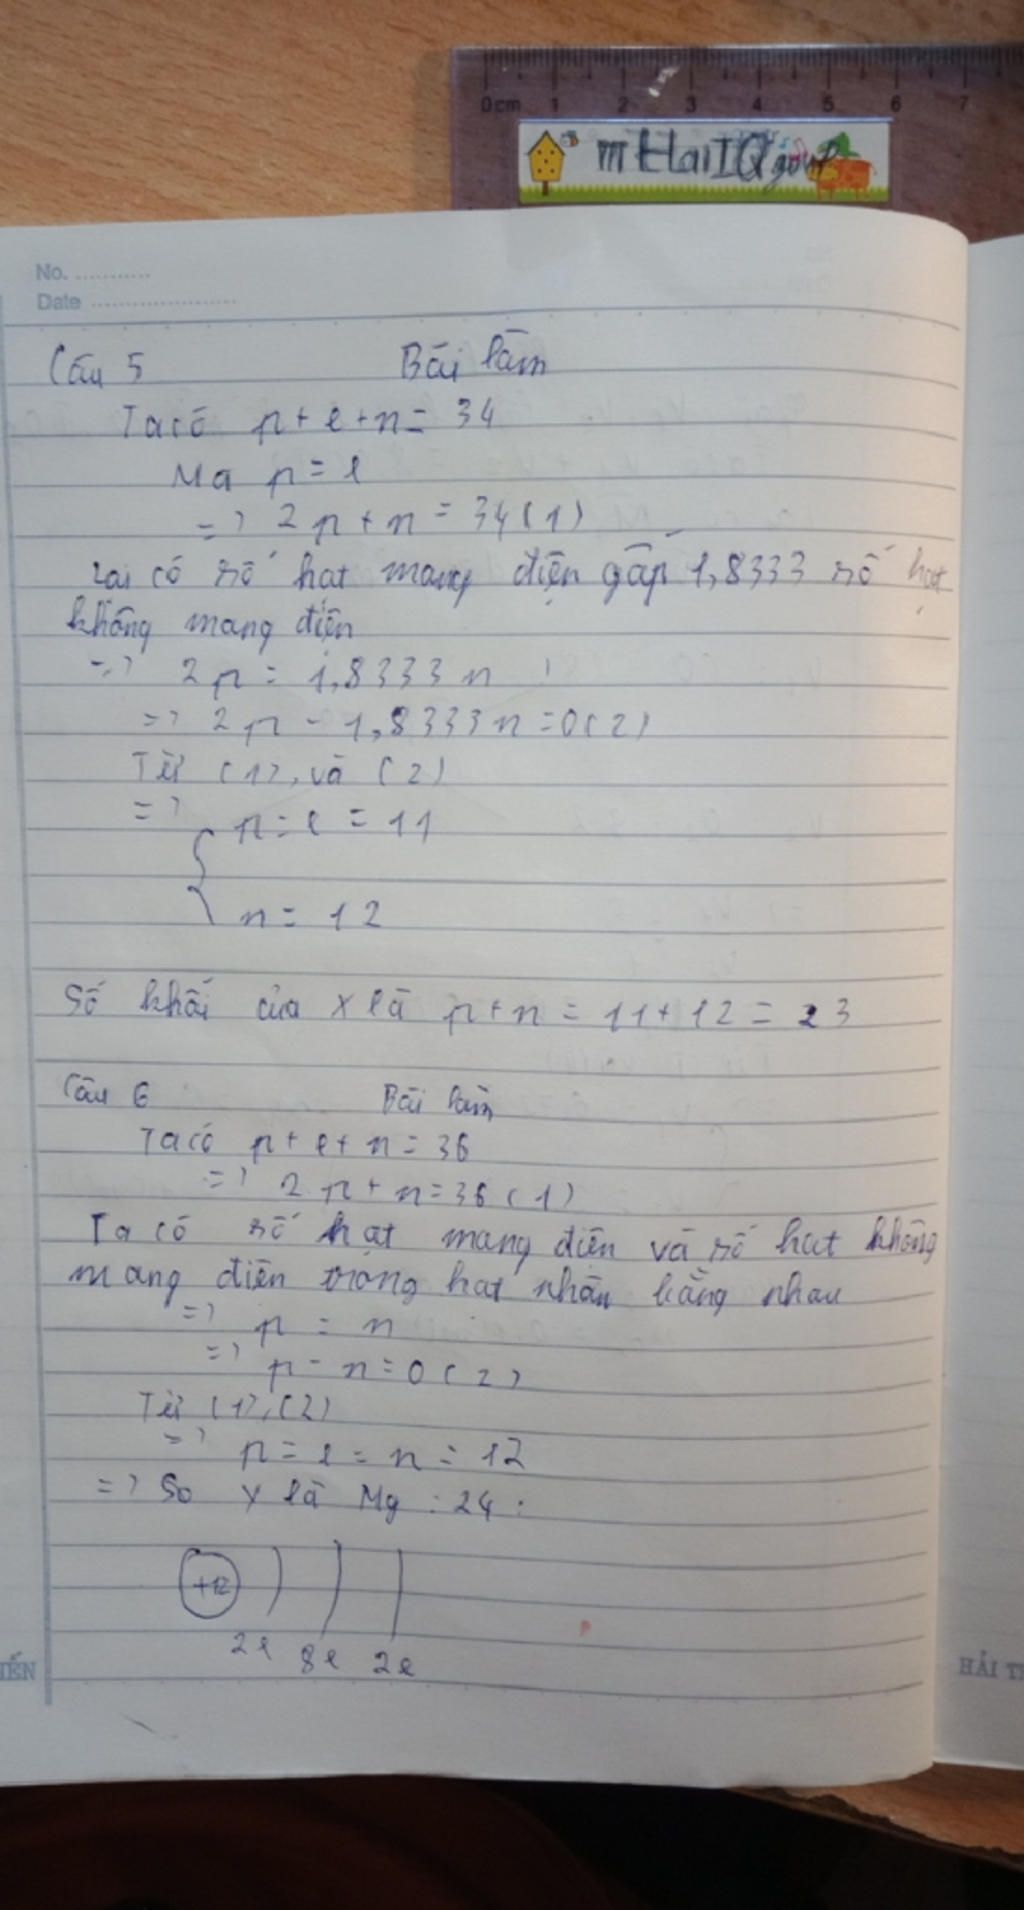 0cm 1 2 3 4 5 6 7
mHaiIQ
No. ...........
Date ......................
Câu 5 Bài làm
Ta có p + e + n = 34
Mà p = e
=> 2p + n = 34 (1)
Lại có số hạt mang điện gấp 1,8333 số hạt
không mang điện
=> 2p = 1,8333n
=> 2p - 1,8333n = 0 (2)
Từ (1), và (2)
=>
{ p = e = 11
n = 12
Số khối của X là p + n = 11 + 12 = 23
Câu 6 Bài làm
Ta có p + e + n = 36
=> 2p + n = 36 (1)
Ta có số hạt mang điện và số hạt không
mang điện trong hạt nhân bằng nhau
=> p = n
=> p - n = 0 (2)
Từ (1), (2)
=> p = e = n = 12
=> So Y là Mg : 24 :
+12
2e 8e 2e
IẾN
HẢI T